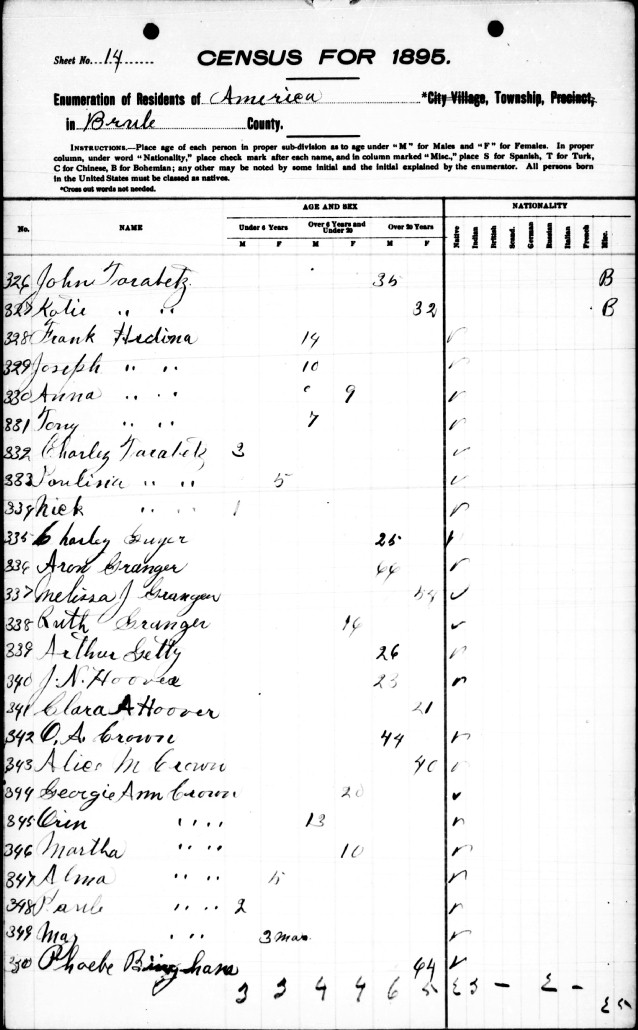 Sheet No. 14
CENSUS FOR 1895.
Enumeration of Residents of America *City Village, Township, Precinct,
in Brule County.
INSTRUCTIONS.—Place age of each person in proper sub-division as to age under "M" for Males and "F" for Females. In proper
column, under word "Nationality," place check mark after each name, and in column marked "Misc.," place S for Spanish, T for Turk,
C for Chinese, B for Bohemian; any other may be noted by some initial and the initial explained by the enumerator. All persons born
in the United States must be classed as natives.
*Cross out words not needed.
AGE AND SEX NATIONALITY
No. NAME Under 6 Years Over 6 Years and Under 20 Over 20 Years Native Indian British Scand. German Russian Italian French Misc.
M F M F M F
326 John Tarabetz 35 B
327 Katie " " 32 B
328 Frank Hrdina 14 ✓
329 Joseph " " 10 ✓
330 Anna " " 9 ✓
331 Tony " " 7 ✓
332 Charley Tarabetz 3 ✓
333 " " 5 ✓
334 Nick " " 1 ✓
335 Charley Guyer 25 ✓
336 Aron Granger 44 ✓
337 Melissa J Granger 54 ✓
338 Ruth Granger 16 ✓
339 Arthur Getty 26 ✓
340 J. N. Hoover 23 ✓
341 Clara A Hoover 21
342 O. A. Crown 44 ✓
343 Alice M Crown 40 ✓
344 Georgie Ann Crown 20 ✓
345 Orin " " 13 ✓
346 Martha " " 10 ✓
347 Alma " " 5 ✓
348 " " 2 ✓
349 May " " 3 mos. ✓
350 Phoebe Bingham 64 ✓
3 3 4 4 6 5 – –